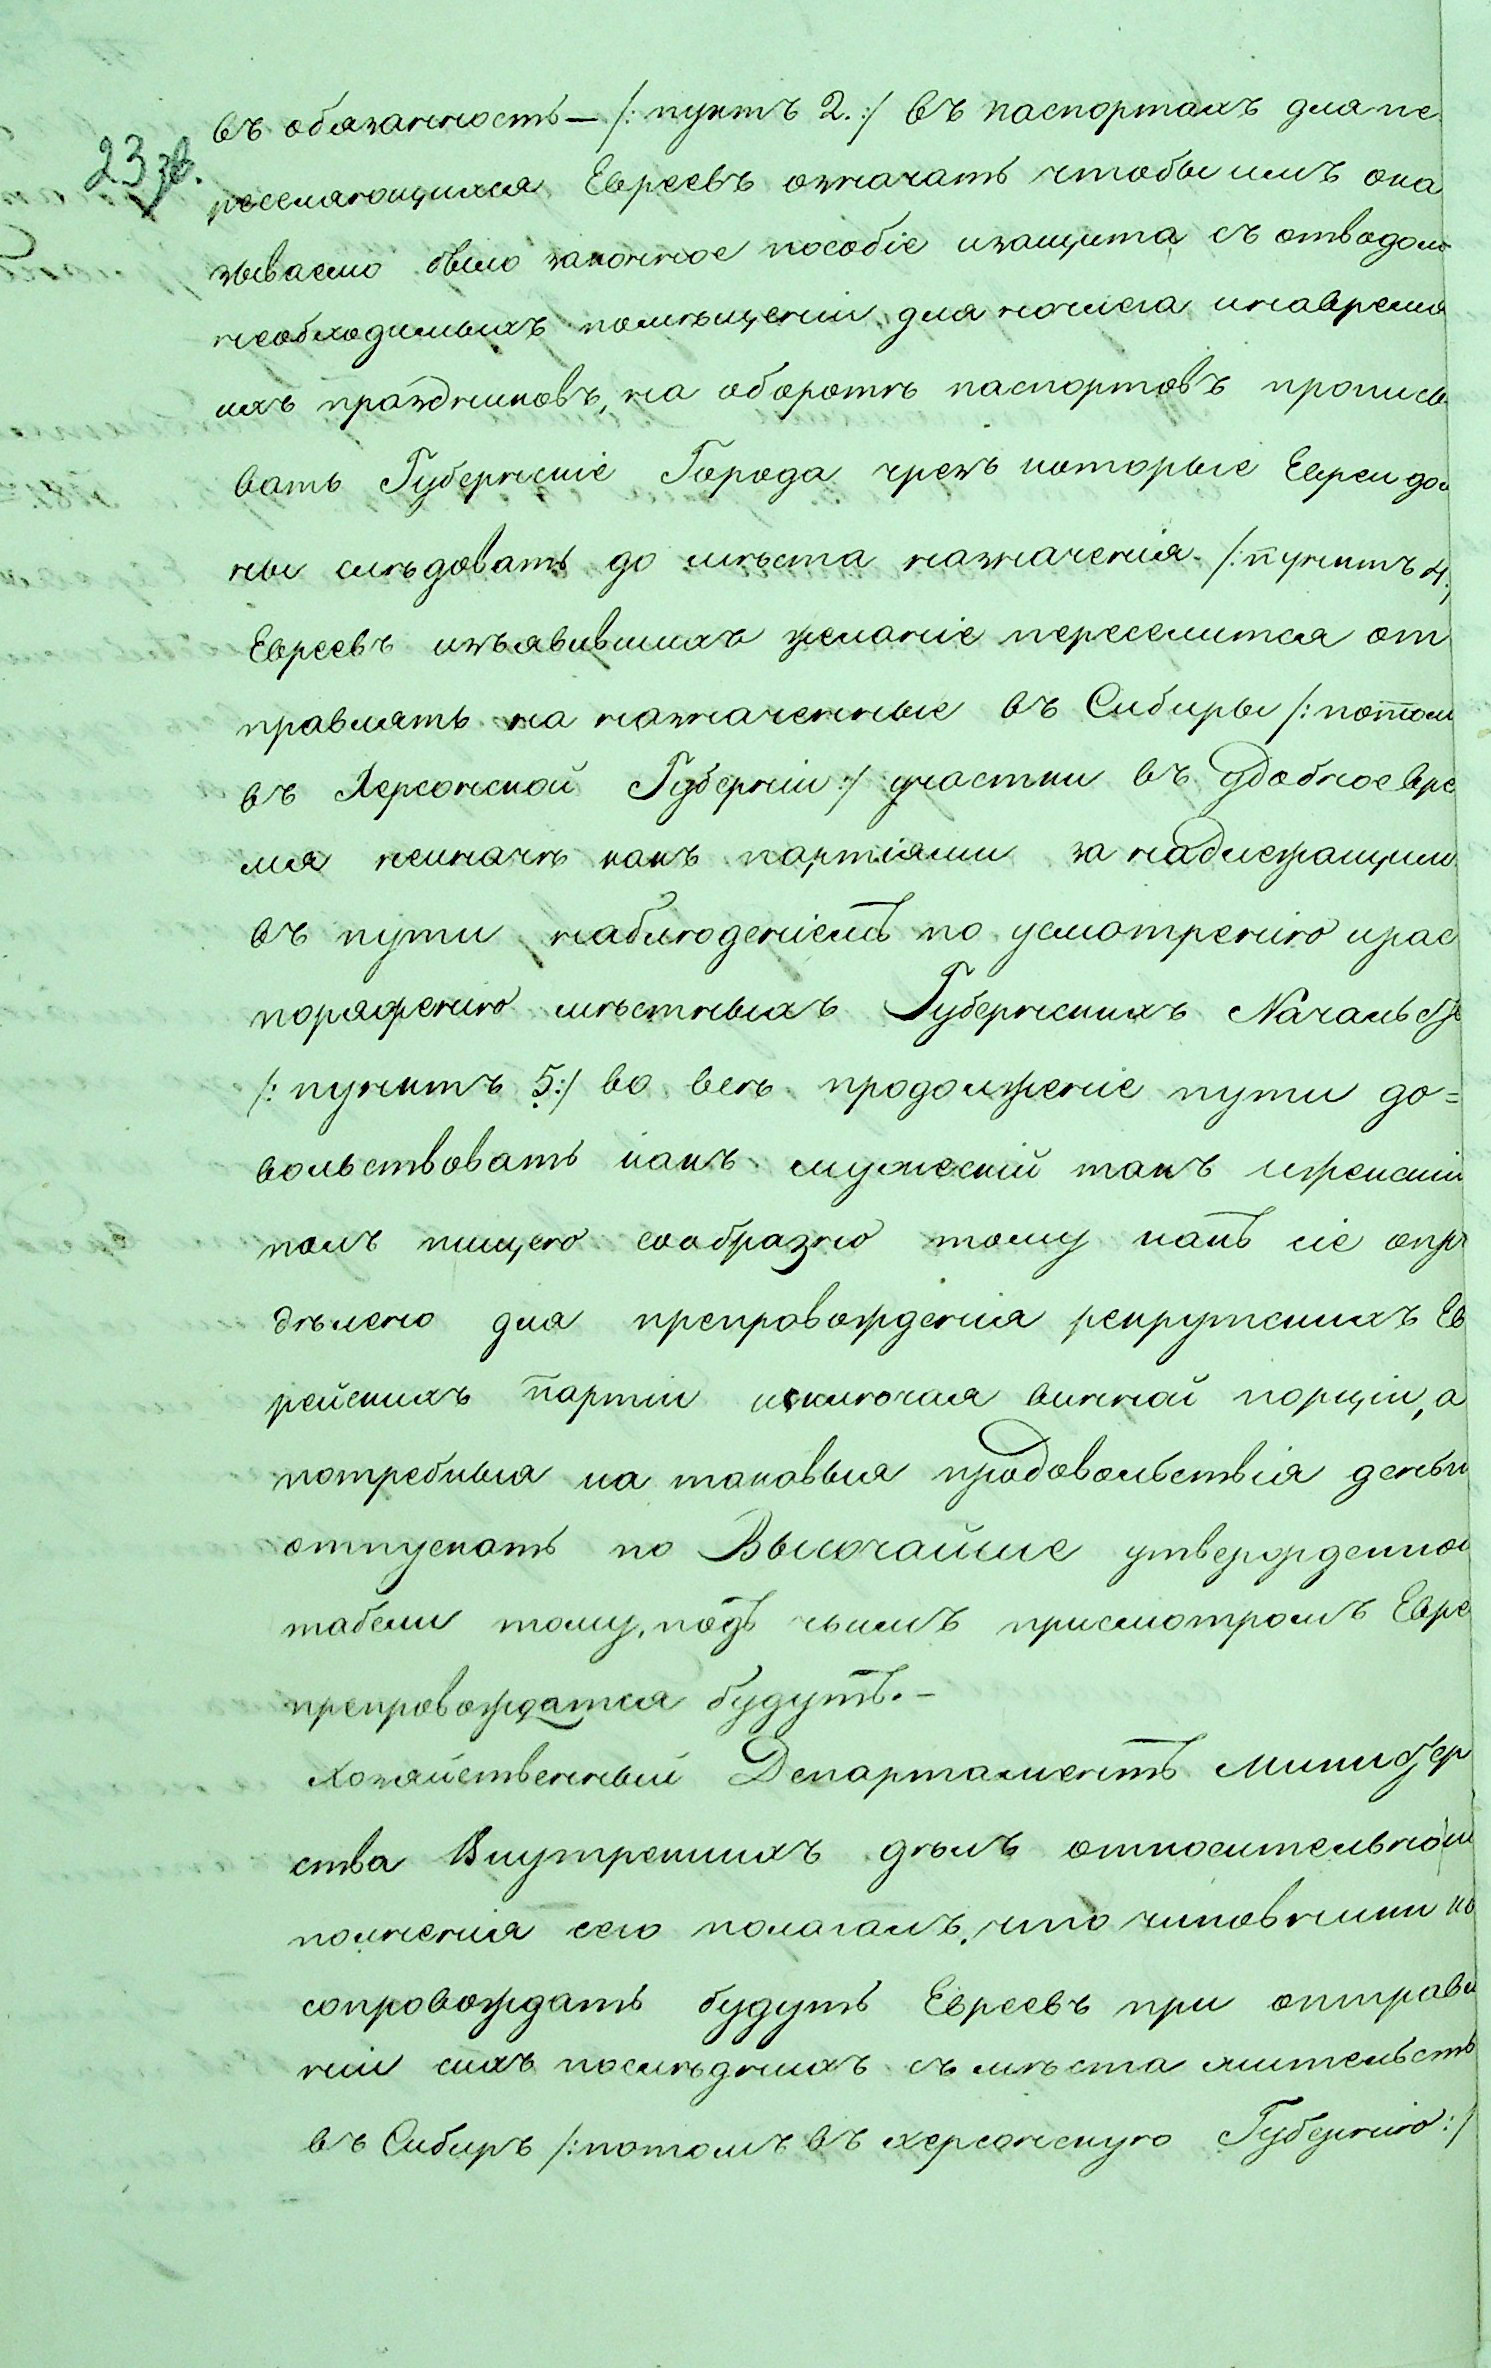 23 зв.
въ обязанность — /: пунктъ 2. :/ въ паспортахъ для пе
реселяющихся Евреевъ означать чтобы имъ ока
зываемо было законное пособіе изащита съ отводом
необходимыхъ помѣщеніи для ночлега инавремя
ихъ праздниковъ, на оборотѣ паспортовъ прописы
вать Губернскіе Города чрезъ которые Евреи дол
ны слѣдовать до мѣста назначенія. /: пунктъ 4.
Евреевъ изъявившихъ желаніе переселится от
правлять на назначенные въ Сибиры /: потом
въ Херсонской Губерніи :/ участки въ удобное вре
мя неиначѣ какъ партіями за надлежащим
въ пути наблюденіемъ по усмотренію ирас
поряженію мѣстныхъ Губернскихъ Начальств
/: пунктъ 5 :/ во все продолженіе пути до=
вольствовать какъ мужескій такъ иженскій
полъ пищею сообразно тому какъ сіе опре
дѣлено для препровожденія рекрутскихъ Ев
рейскихъ партіи исключая винной порціи, а
потребныя на таковыя продовольствія деньги
отпускать по Высочайше утвержденной
табели тому, подъ чьимъ присмотромъ Евре
препровождатся будутъ. –
Хозяйственный Департаментъ Министер
ства Внутреннихъ дѣлъ относительно ис
полненія сего полагалъ, что чиновники ко
сопровождать будутъ Евреевъ при отправл
ніи сихъ послѣднихъ съ мѣста жительств
въ Сибирь /: потомъ въ херсонскую Губернію :/